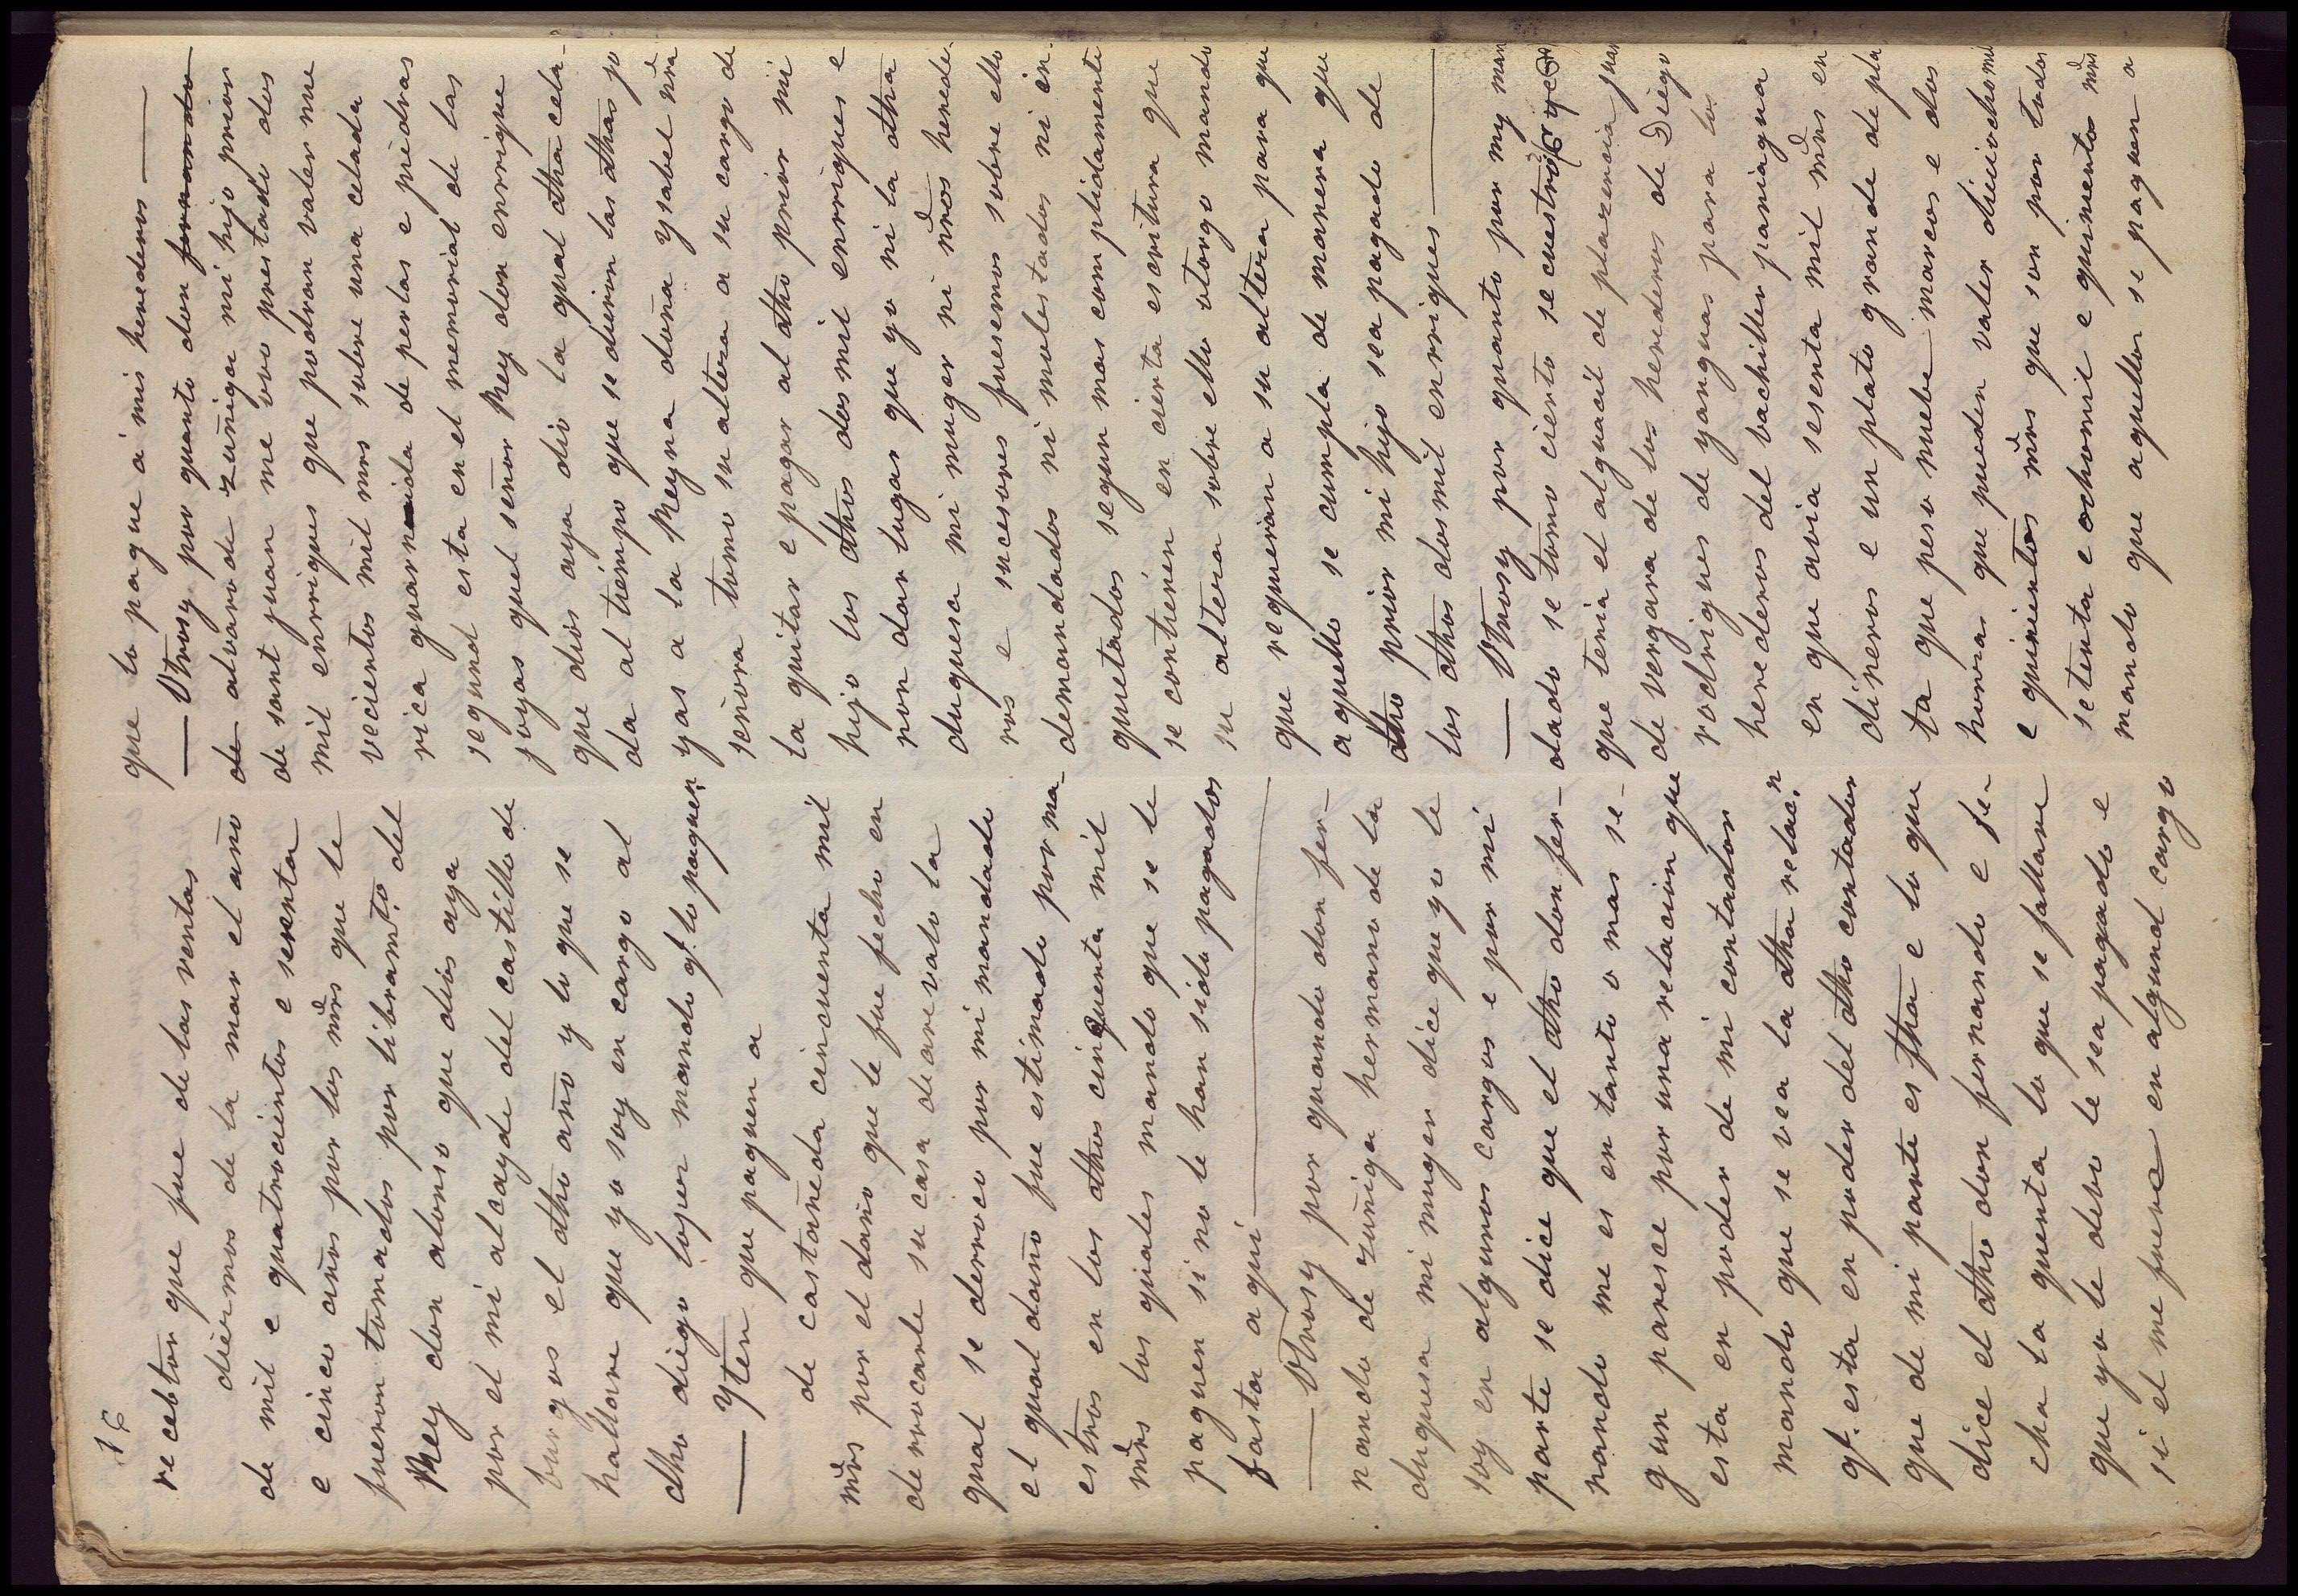 16
recebtor que fue de las rentas
diezmos de la mar el año
de mil e quatrocientos e sesenta
e cinco años por los mrs que le
fueron tomados por libramto. del
Rey don alonso que dios aya
por el mi alcayde del castillo de
burgos el dho año y lo que se
hallare que yo soy en cargo al
dho diego loper mando q.e lo paguen
— Yten que paguen a
de castañeda cincuenta mil
mrs por el daño que le fue fecho en
derrocarle su casa de arevalo la
qual se derroco por mi mandado
el qual daño fue estimado por ma-
estros en los dhos cinquenta mil
mrs los quales mando que se le
paguen si no le han sido pagados
fasta aqui —
— Otrosy por quando don fer-
nando de zuñiga hermano de la
duquesa mi muger dice que yo le
soy en algunos cargos e por mi
parte se dice que el dho don fer-
nando me es en tanto o mas se-
gun paresce por una relacion que
esta en poder de mi contador
mando que se vea la dha relac.n
q.e esta en poder del dho contador
que de mi parte es fha e lo que
dice el dho don fernando e fe-
cha la quenta lo que se fallare
que yo le debo le sea pagado e
si el me fuere en algund cargo
que lo pague á mis herederos —
— Otrosy por quanto don fernando
de alvaro de zuñiga mi hijo prior
de sant juan me ovo prestado dos
mil enrriques que podran valer nue
vecientos mil mrs sobre una celada
rica guarnecida de perlas e piedras
segund esta en el memorial de las
joyas quel señor Rey don enrrique
que dios aya dio la qual dha cela-
da al tiempo que se dieron las dhas jo
yas a la Reyna doña ysabel nra
señora tomo su alteza a su cargo de
la quitar e pagar al dho prior mi
hijo los dhos dos mil enrriques e
non dar lugar que yo ni la dha
duquesa mi muger ni nros herede.
ros e sucesores fuesemos sobre ello
demandados ni molestados ni in.
quetados segun mas complidamente
se contienen en cierta escritura que
su alteza sobre ello otorgo mando
que requieran a su alteza para que
aquello se cumpla de manera que
dho prior mi hijo sea pagado de
los dhos dosmil enrriques —
— Otrosy por quanto por my man
dado se tomo cierto secuestro
que tenia el alguacil de plazencia juan
de vergara de los herederos de Diego
rodrigues de yanguas para los
herederos del bachiller paniagua
en que avia sesenta mil mrs en
dineros e un plato grande de pla
ta que peso nuebe marcos e dos
honzas que pueden valer dieciocho mil
e quinientos mrs que son por todos
setenta e ochomil e quinientos mrs
mando que aquellos se paguen a